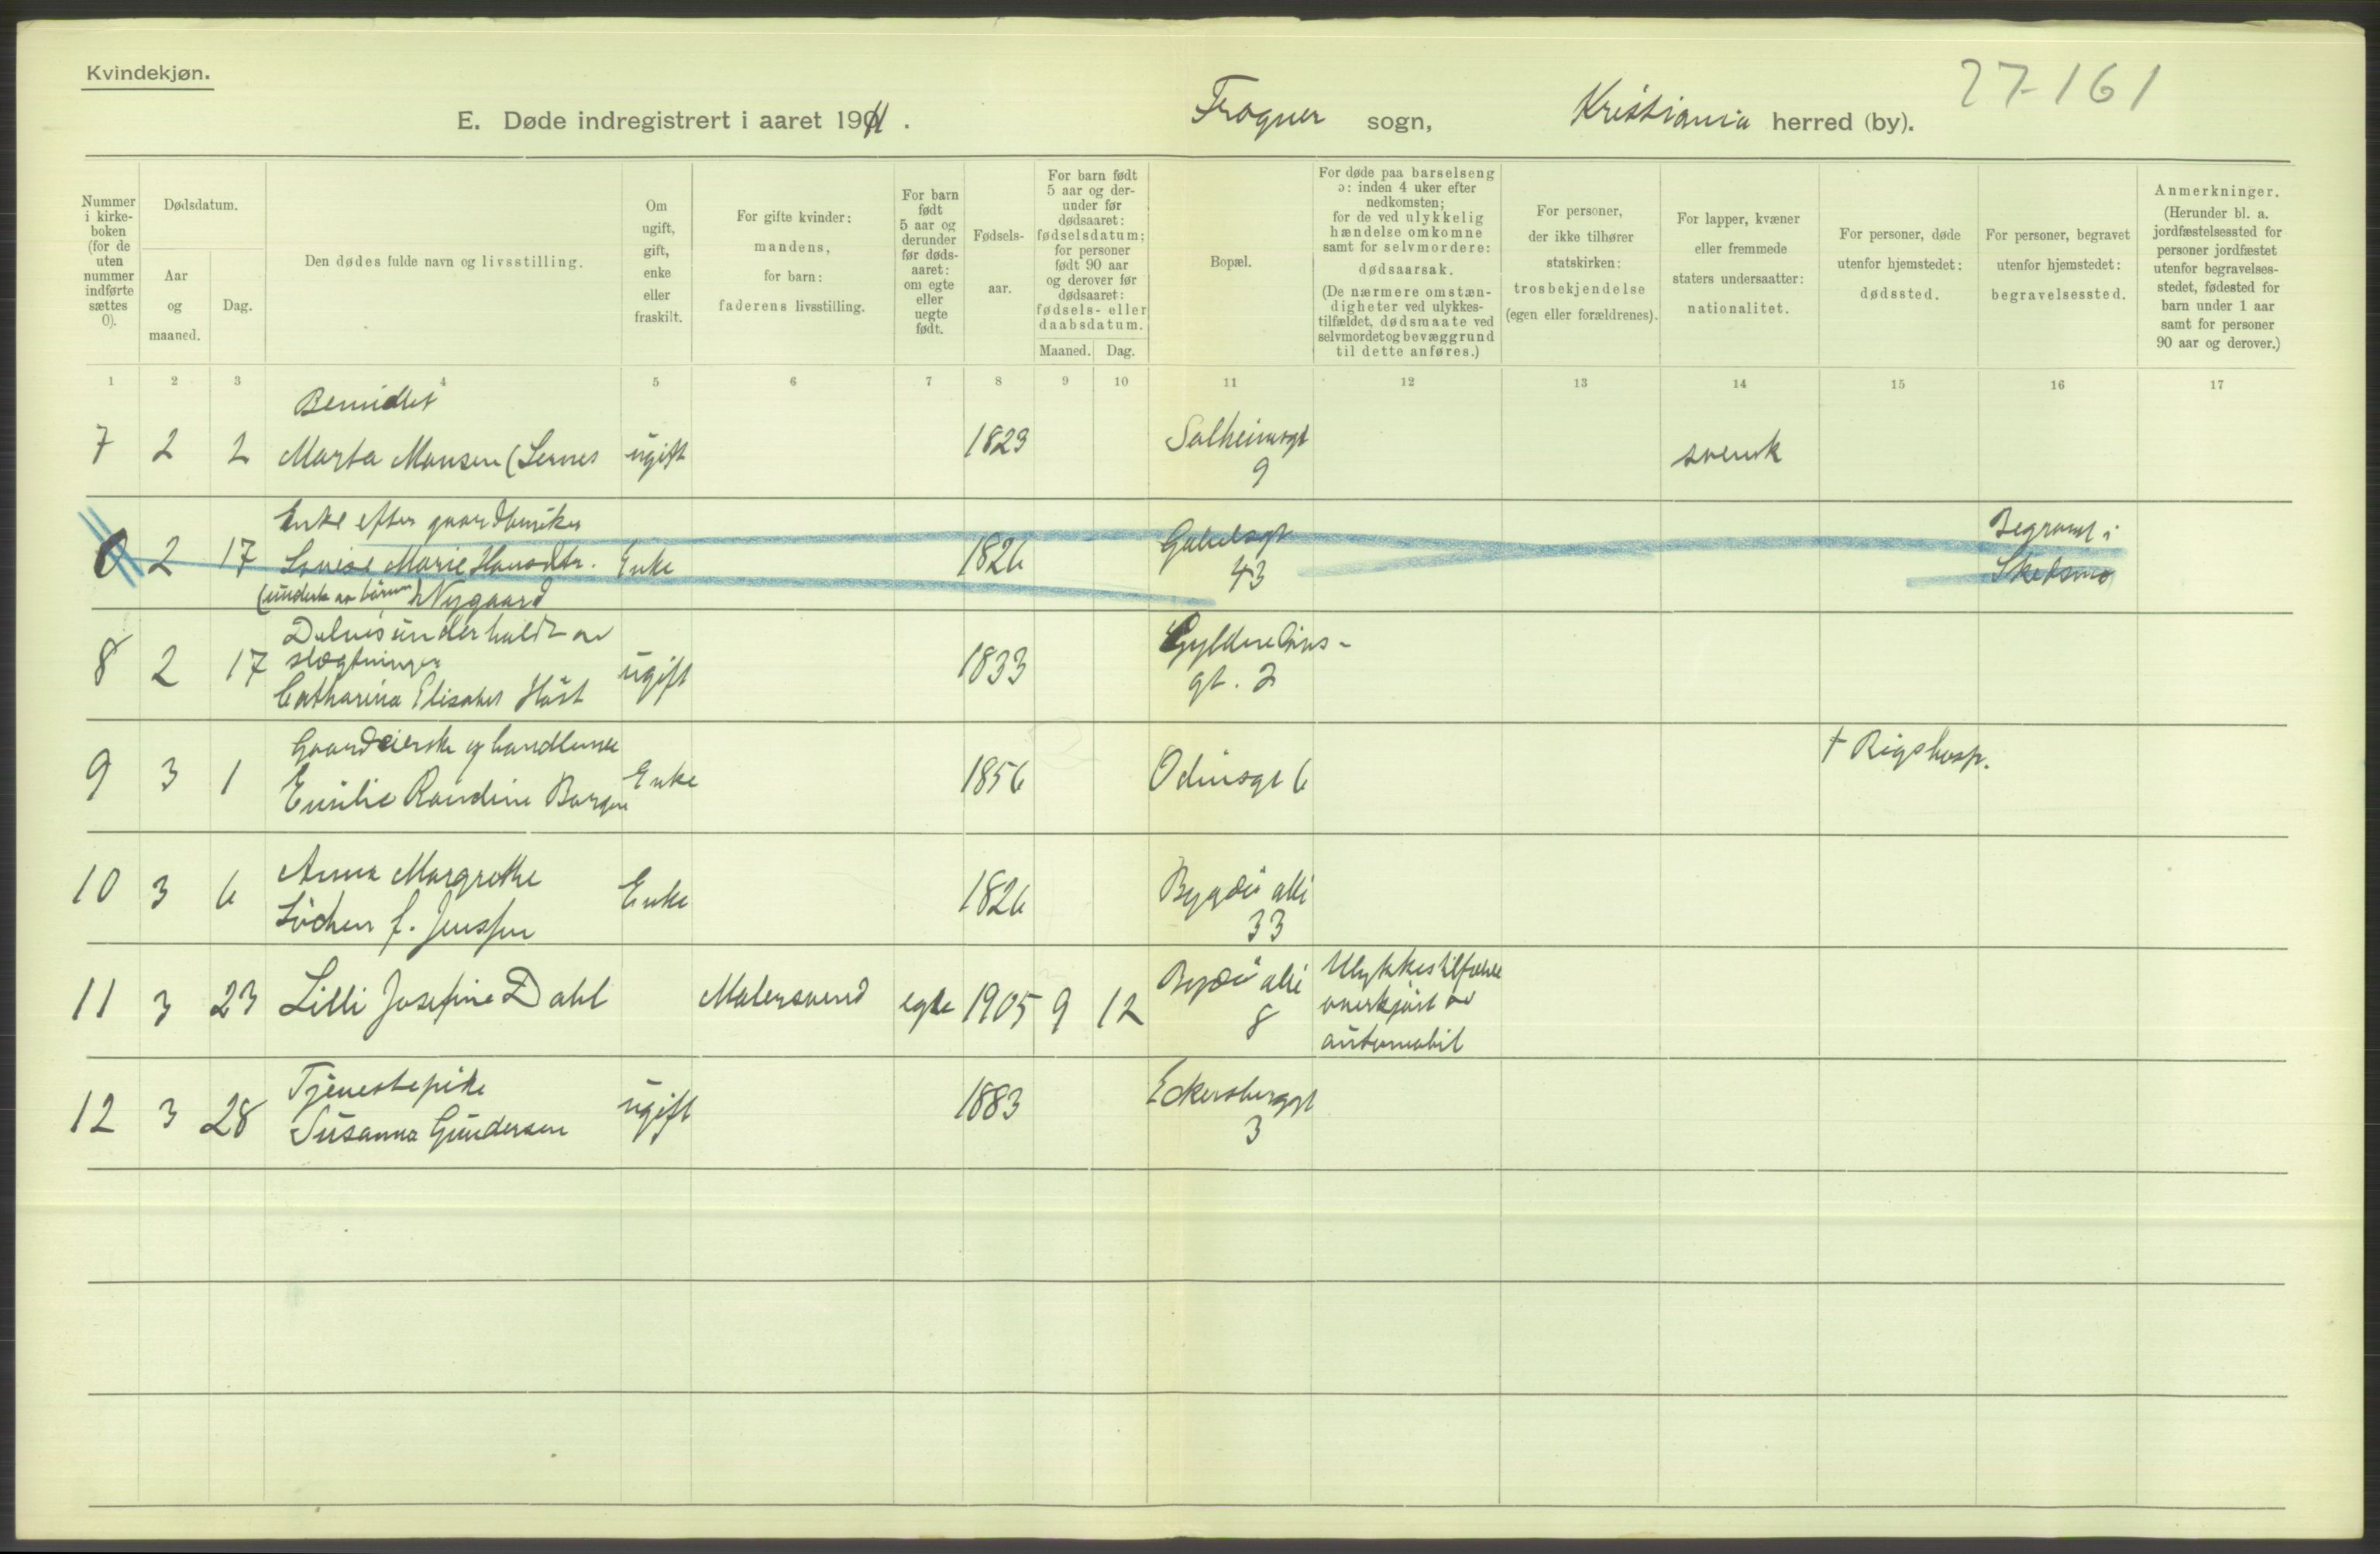 Kvindekjøn.
27-161
E. Døde indregistrert i aaret 1911. Frogner sogn, Kristiania herred (by).
Nummer i kirke- boken (for de uten nummer indførte sættes 0).
Dødsdatum.
Aar og maaned.
Dag.
Den dødes fulde navn og livsstilling.
Om ugift, gift, enke eller fraskilt.
For gifte kvinder: mandens, for barn: faderens livsstilling.
For barn født 5 aar og derunder før døds- aaret: om egte eller uegte født.
Fødsels- aar.
For barn født 5 aar og der- under før dødsaaret: fødselsdatum; for personer født 90 aar og derover før dødsaaret: fødsels- eller daabsdatum.
Maaned. Dag.
Bopæl.
For døde paa barselseng ɔ: inden 4 uker efter nedkomsten; for de ved ulykkelig hændelse omkomne samt for selvmordere: dødsaarsak. (De nærmere omstæn- digheter ved ulykkes- tilfældet, dødsmaate ved selvmordet og bevæggrund til dette anføres.)
For personer, der ikke tilhører statskirken: trosbekjendelse (egen eller forældrenes).
For lapper, kvæner eller fremmede staters undersaatter: nationalitet.
For personer, døde utenfor hjemstedet: dødssted.
For personer, begravet utenfor hjemstedet: begravelsessted.
Anmerkninger. (Herunder bl. a. jordfæstelsessted for personer jordfæstet utenfor begravelses- stedet, fødested for barn under 1 aar samt for personer 90 aar og derover.)
1 2 3 4 5 6 7 8 9 10 11 12 13 14 15 16 17
Bemidlet
7 2 2 Marta Monsen ugift 1823 Solheimsgt 9 svensk
Enke efter gaardbruker
0 2 17 Lovise Marie Hansdtr. Enke 1826 Gabelsgt 43 Begravet i Skedsmo
(underh av børn) Nygaard
Delvis underholdt av
slægtninger
8 2 17 Catharina Elisabet Høst ugift 1833 Gyldenløves- gt. 2
Gaardeierske og handlende
9 3 1 Emilie Randine Borgen Enke 1856 Odinsgt 6 † Rigshosp.
10 3 6 Anna Margrethe Enke 1826 Bygdø allé 33
Løchen f. Jenssen
11 3 23 Lilli Josefine Dahl Malersvend egte 1905 9 12 Bygdø allé 8 Ulykkestilfælde overkjørt av automobil
Tjenestepike
12 3 28 Susanna Gundersen ugift 1883 Eckersberggt 3